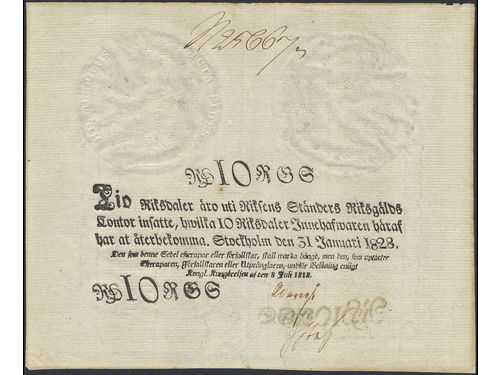 N 25667
Rd 10 RGS
Tio Riksdaler äro uti Riksens Ständers Riksgälds
Contor insatte, hwilka 10 Riksdaler Innehafwaren häraf
har at återbekomma. Stockholm den 31 Januari 1828.
Den som denne Sedel efterapar eller förfalskar, skall warda hängd, men den, som uptäcker
Efteraparen, Förfalskaren eller Utprånglaren, undfår Belöning enligt
Kongl. Kungörelsen af den 8 Juli 1818.
Rd 10 RGS